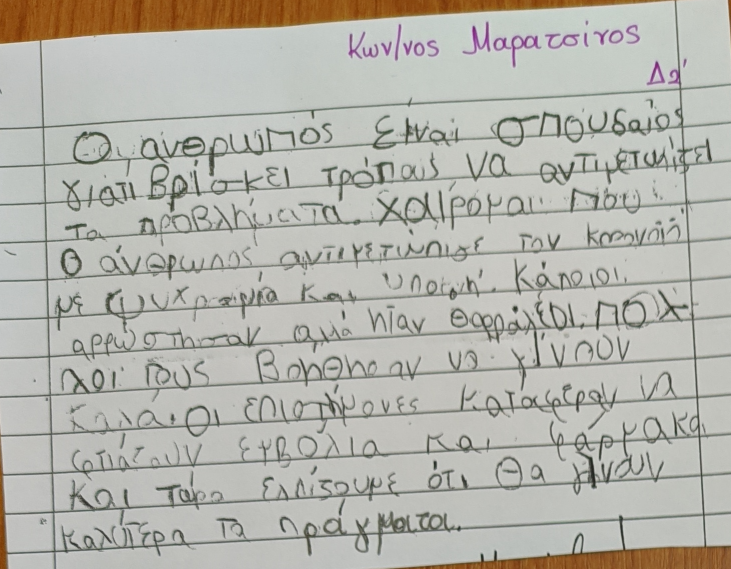 Κων/νος Μαρατσίνος
Δ2'
Ο άνθρωπός είναι σπουδαίος
γιατί βρίσκει τρόπους να αντιμετωπίσει
τα προβλήματα. Χαίρομαι που
ο άνθρωπος αντιμετώπισε τον
με ψυχραιμία και υπομονή. Κάποιοι
αρρώστησαν αλλά ήταν θαρραλέοι. ΠΟλ
λοί τους βοήθησαν να γίνουν
καλά. Οι επιστήμονες κατάφεραν να
φτιάξουν εμβόλια και φάρμακα
και τώρα ελπίζουμε ότι θα γίνουν
καλύτερα τα πράγματα.